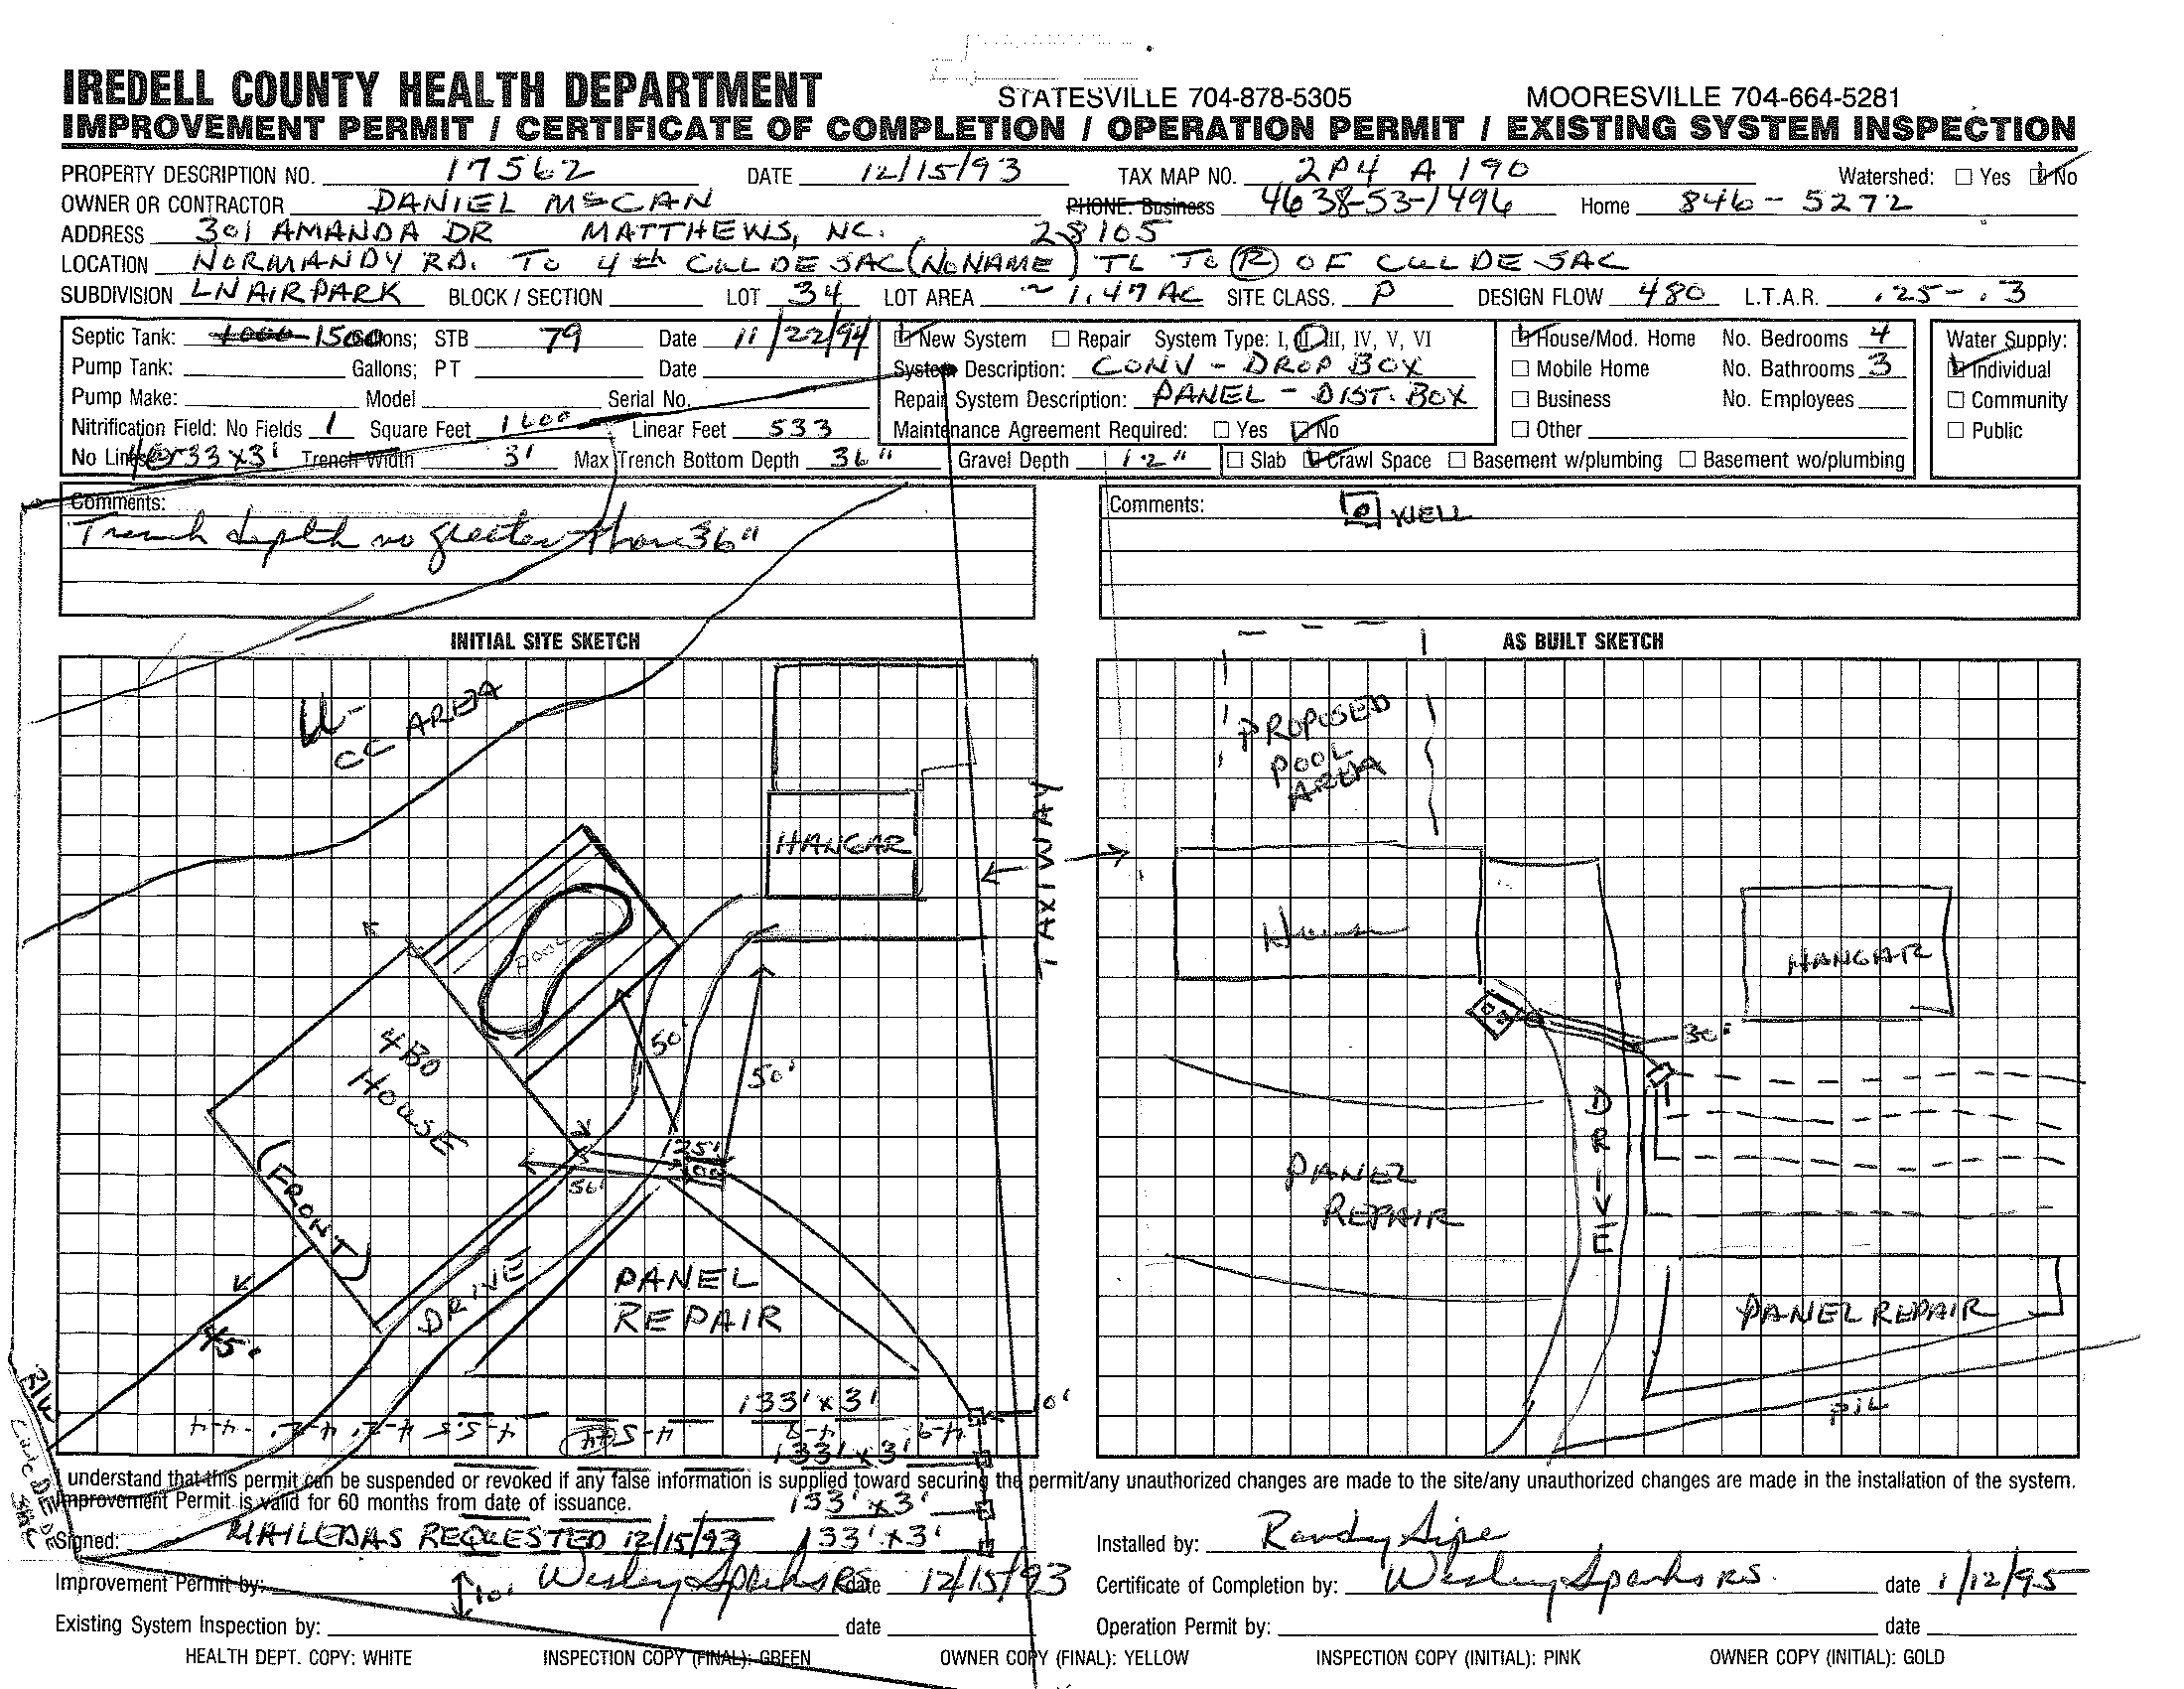 IREDELL COUNTY HEALTH DEPARTMENT STATESVILLE 704-878-5305 MOORESVILLE 704-664-5281
IMPROVEMENT PERMIT / CERTIFICATE OF COMPLETION / OPERATION PERMIT / EXISTING SYSTEM INSPECTION
PROPERTY DESCRIPTION NO. 17562 DATE 12/15/93 TAX MAP NO. 2P4 A 190 Watershed: Yes No
OWNER OR CONTRACTOR DANIEL McCAN PHONE: Business 4638-53-1496 Home 846-5272
ADDRESS 301 AMANDA DR MATTHEWS, NC. 28105
LOCATION NORMANDY RD. TO 4th CUL DE SAC (NO NAME) TL TO R OF CUL DE SAC
SUBDIVISION LN AIRPARK BLOCK / SECTION LOT 34 LOT AREA ~ 1.47 AC SITE CLASS. P DESIGN FLOW 480 L.T.A.R. .25-.3
Septic Tank: 1000 1500 Gallons; STB 79 Date 11/22/94 New System Repair System Type: I, II, III, IV, V, VI House/Mod. Home No. Bedrooms 4 Water Supply:
Pump Tank: Gallons; PT Date System Description: CONV - DROP BOX Mobile Home No. Bathrooms 3 Individual
Pump Make: Model Serial No. Repair System Description: PANEL - DIST. BOX Business No. Employees Community
Nitrification Field: No Fields 1 Square Feet 1600 Linear Feet 533 Maintenance Agreement Required: Yes No Other Public
No Lines 133 x 3' Trench Width 3' Max Trench Bottom Depth 36" Gravel Depth 12" Slab Crawl Space Basement w/plumbing Basement wo/plumbing
Comments:
Trench depth no greater than 36"
Comments: WELL
INITIAL SITE SKETCH
CC AREA
HANGAR
TAXIWAY
POOL
4BD
HOUSE
50'
50'
(FRONT)
DRIVE
PANEL
REPAIR
45'
133' x 3'
10'
133' x 3'
133' x 3'
133' x 3'
10'
AS BUILT SKETCH
PROPOSED
POOL
AREA
House
HANGAR
30'
DRIVE
PANEL
REPAIR
PANEL REPAIR
I understand that this permit can be suspended or revoked if any false information is supplied toward securing the permit/any unauthorized changes are made to the site/any unauthorized changes are made in the installation of the system.
Improvement Permit is valid for 60 months from date of issuance.
Signed: MAILED AS REQUESTED 12/15/93
Installed by: Randy Sipe
Improvement Permit by: Wesley Sparks RS date 12/15/93
Certificate of Completion by: Wesley Sparks RS. date 1/12/95
Existing System Inspection by: date
Operation Permit by: date
HEALTH DEPT. COPY: WHITE INSPECTION COPY (FINAL): GREEN OWNER COPY (FINAL): YELLOW INSPECTION COPY (INITIAL): PINK OWNER COPY (INITIAL): GOLD